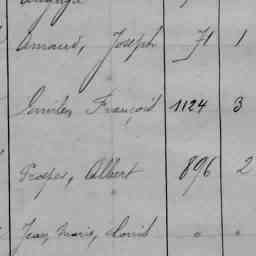 Arnaud, Joseph 71 1
Emilien François 1124 3
Prosper, Albert 896 2
Jean, Marie, Louis " "